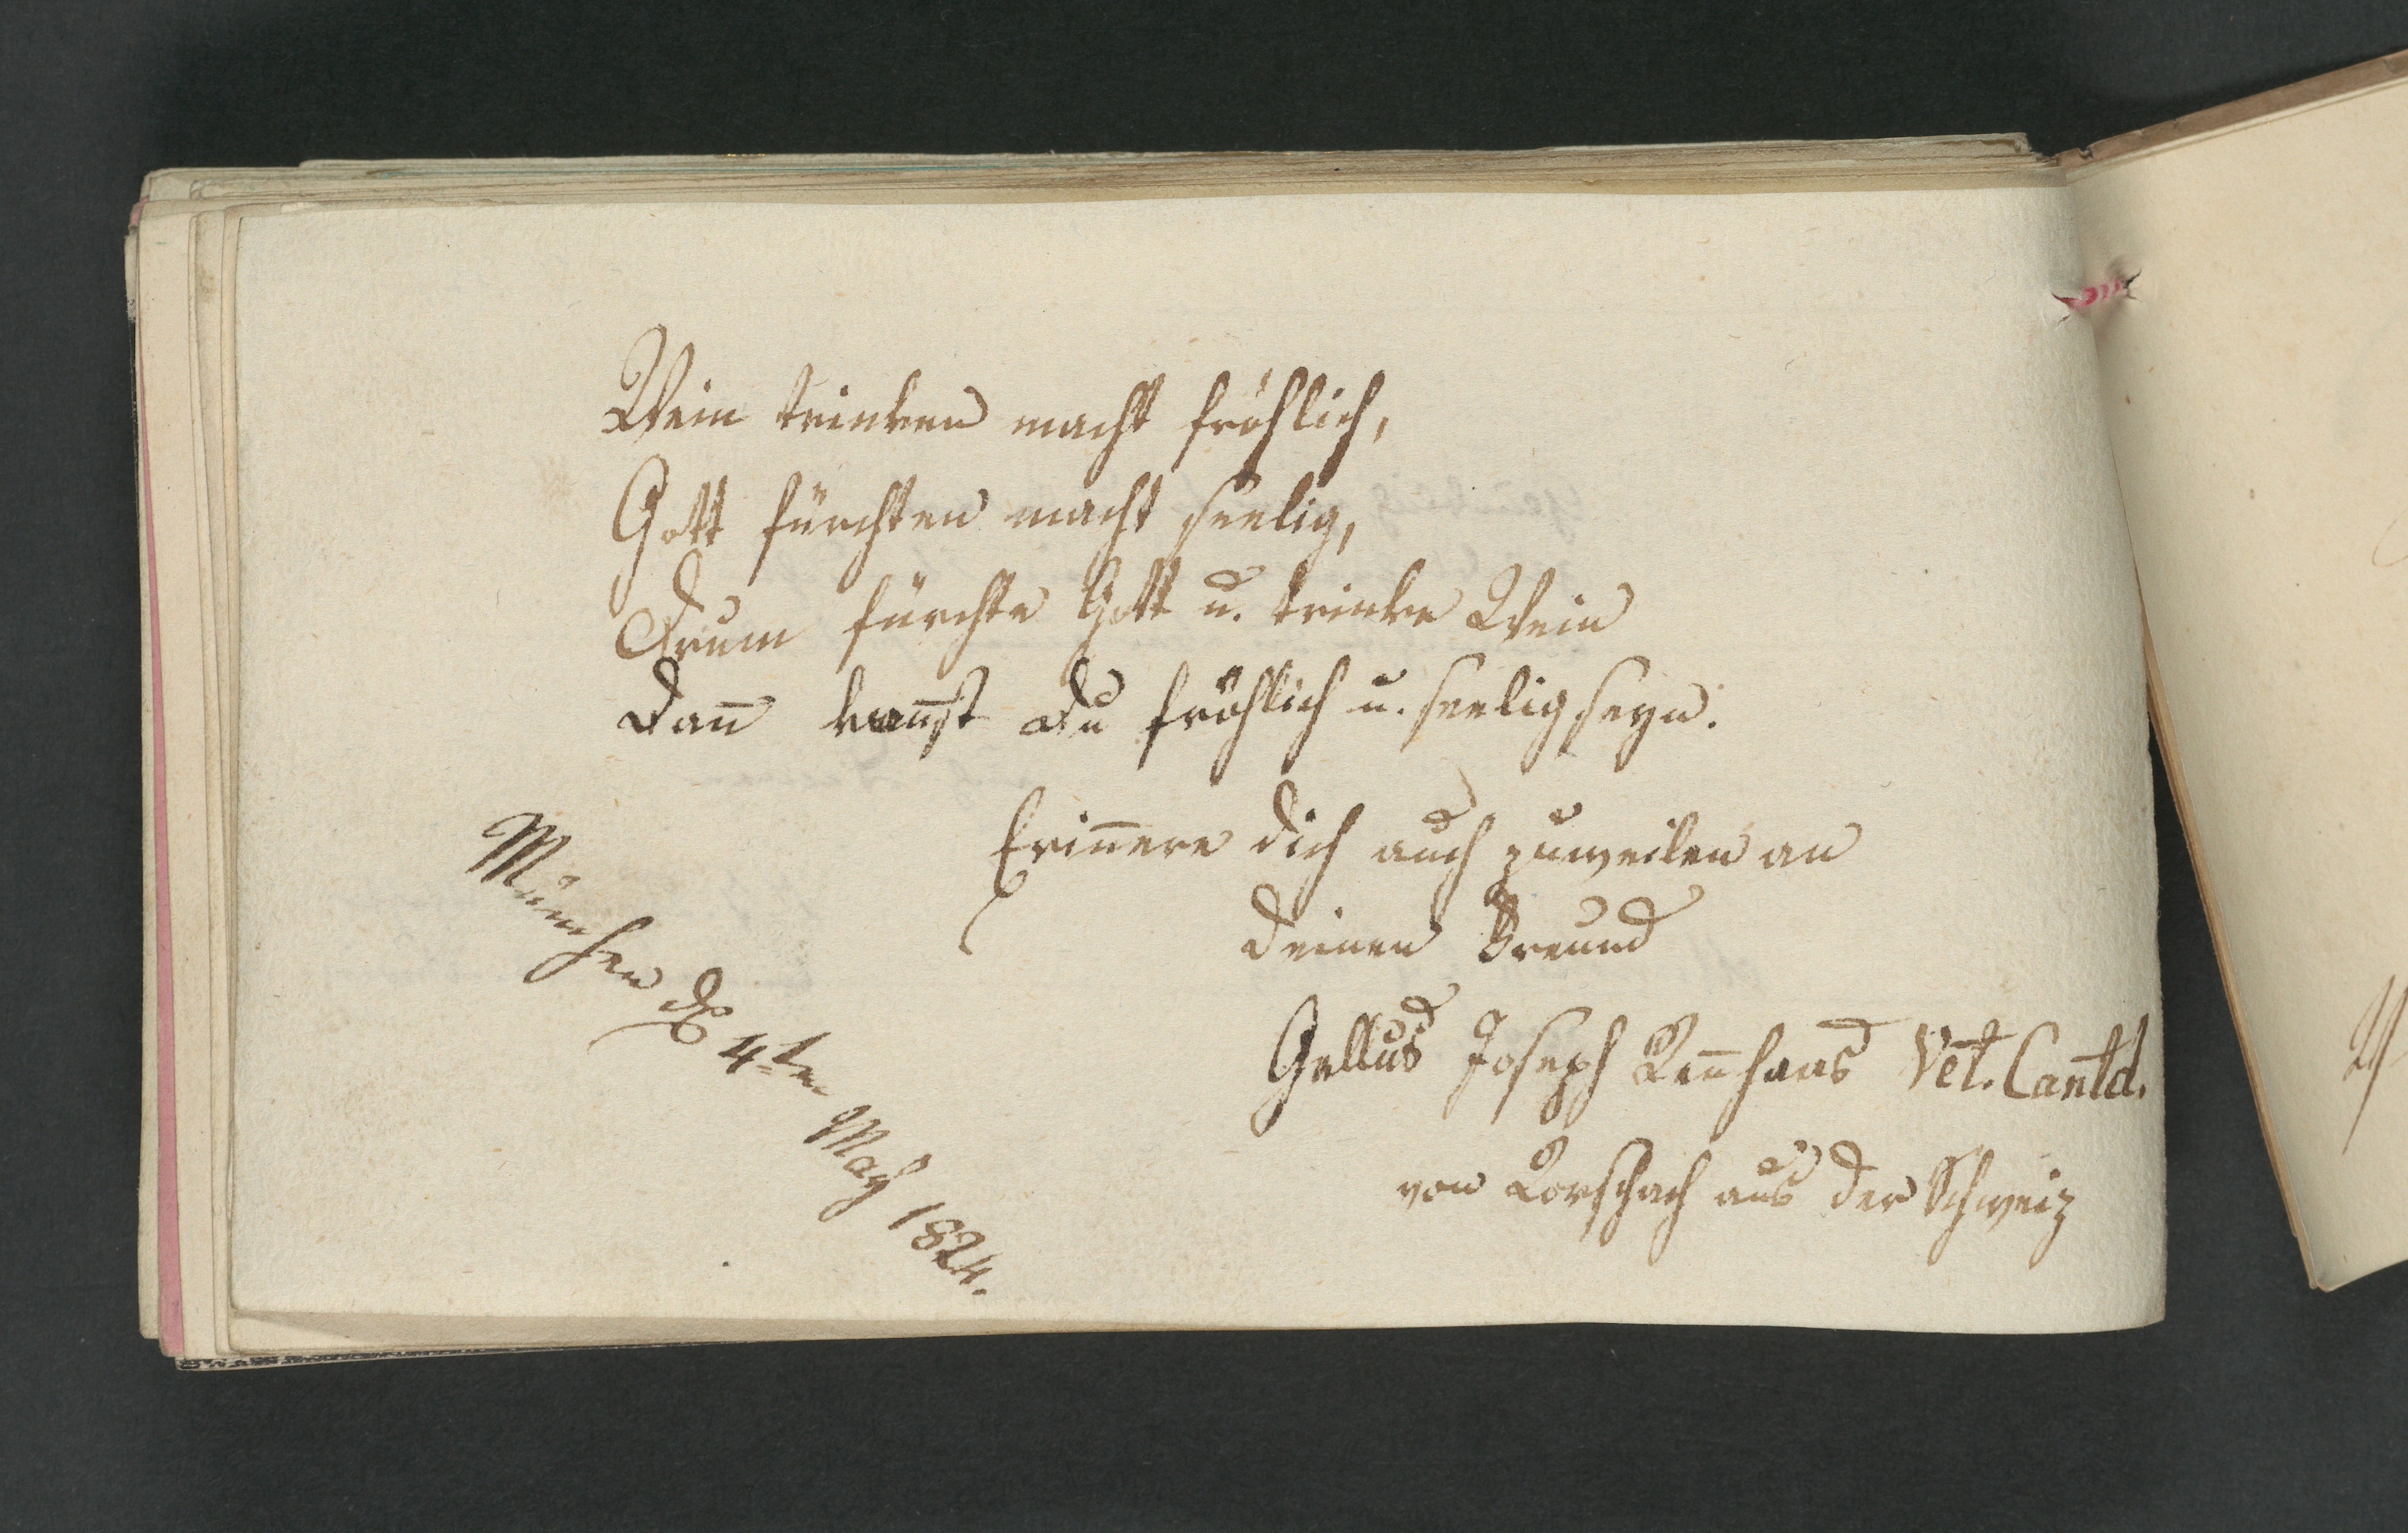 Wein trinken macht fröhlich,
Gott fürchten macht seelig,
Drum fürchte Gott u. trinke Wein
Dan̄ kan̄st du fröhlich u. seelig seyn.
Erin̄ere dich auch zuweilen an
deinen Freund
Gallus Joseph Vet. Cantd.
von Rorschach aus der Schweiz
München d 4ten May 1824.